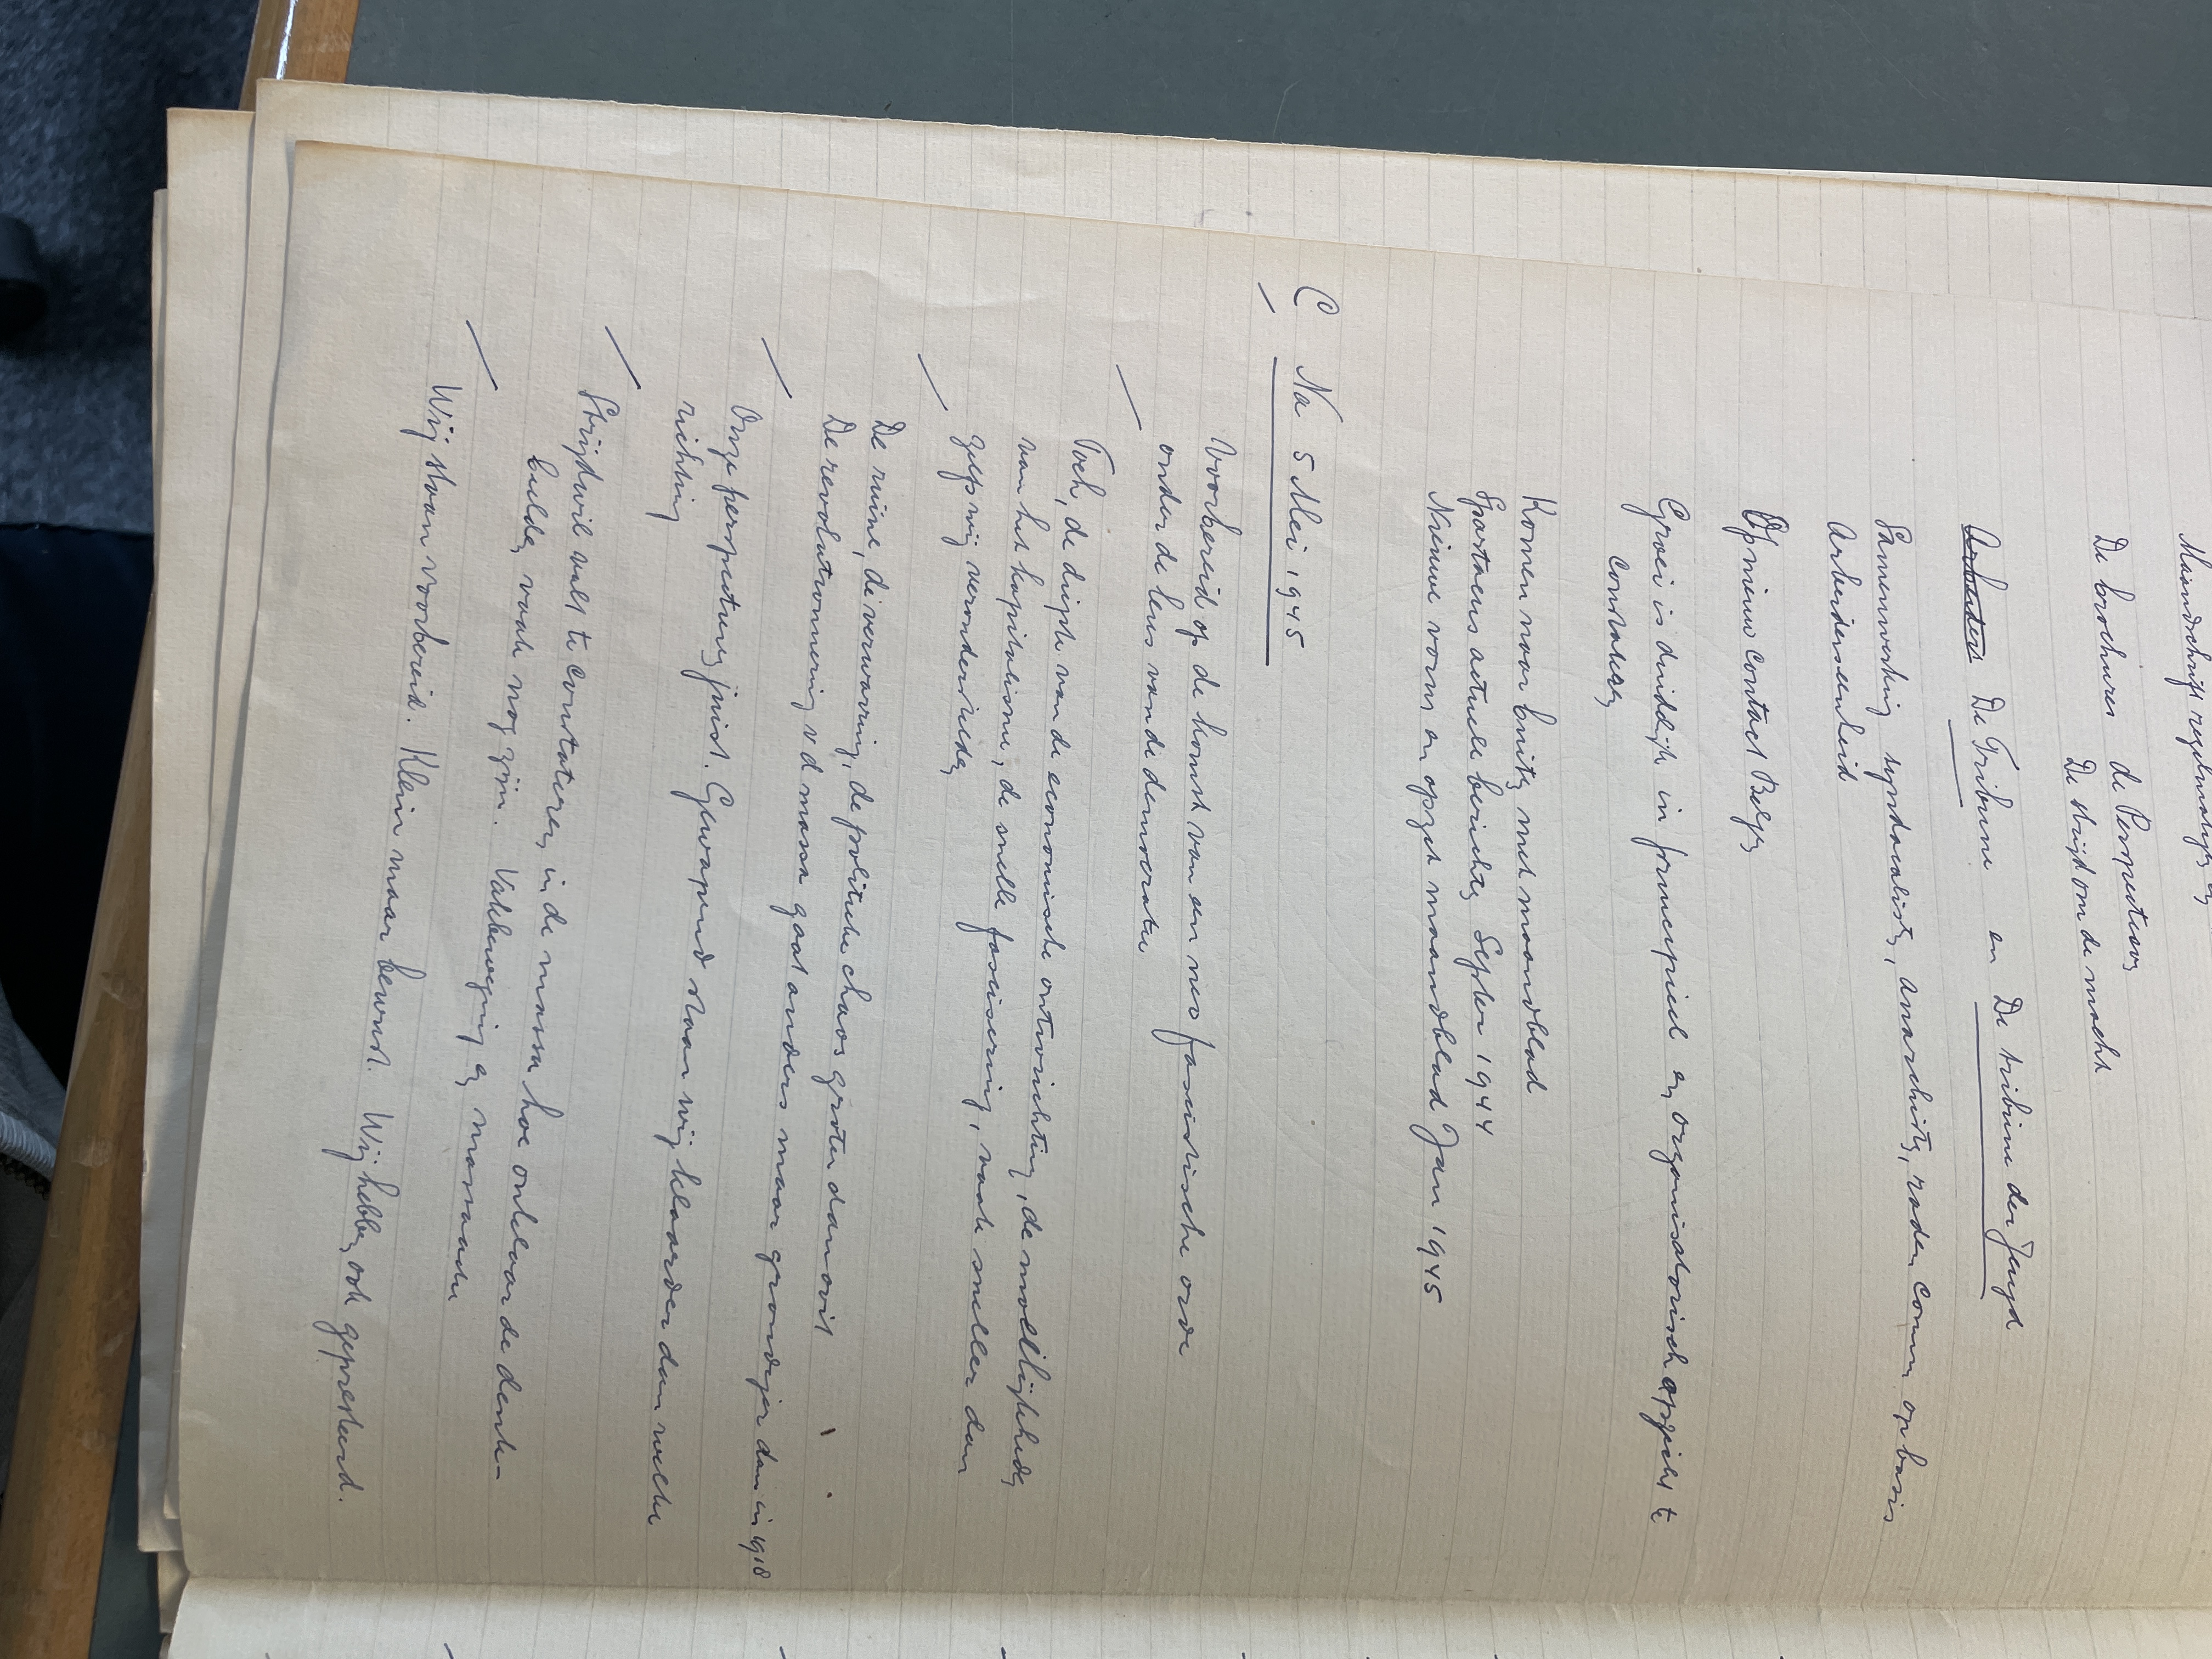 Maandschrift regelmatig en
De brochures de Perspectieven
De strijd om de macht
De Tribune en De tribune der Jeugd
Samenwerking syndicalisten, anarchisten, raden comm op basis
Arbeiderseenheid
Opnieuw contact Belgen
Groei is duidelijk in principieel en organisatorisch opzicht te
constateren
Komen naar buiten met maandblad
Spartacus actuele berichten Septber 1944
Nieuwe vorm en opzet maandblad Jan 1945
C Na 5 Mei 1945
Voorbereid op de komst van een neo fascistische orde
onder de leus van de democratie
Toch, de diepte van de economische ontwrichting, de moeilijkheden
van het kapitalisme, de snelle fascisering, vaak sneller dan
zelfs wij veronderstelden
De ruïne, de verwarring, de politieke chaos groter dan ooit
De revolutionering v d massa gaat anders maar grondiger dan in 1918
Onze perspectieven juist. Gewapend staan wij klaarder dan welke
richting
Strijdwil valt te constateren in de massa hoe onklaar de denk-
beelden vaak nog zijn. Vakbeweging en massaactie
Wij staan voorbereid. Klein maar bewust. Wij hebben ook gepresteerd.